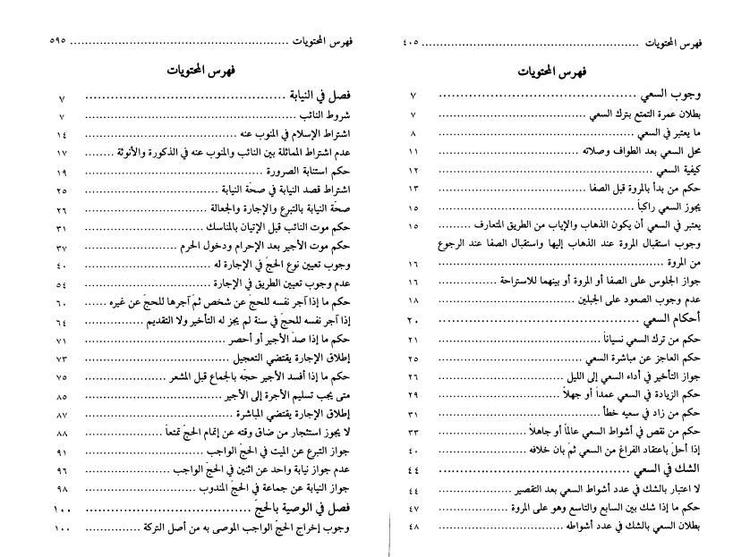 فهرس المحتويات ........................................................ ٤٠٥
فهرس المحتويات
وجوب السعي ........................................................ ٧
بطلان عمرة التمتع بترك السعي ........................................ ٧
ما يعتبر في السعي ........................................ ٨
محل السعي بعد الطواف وصلاته ........................................ ١١
كيفية السعي ........................................ ١٢
حكم من بدأ بالمروة قبل الصفا ........................................ ١٣
يجوز السعي راكباً ........................................ ١٥
يعتبر في السعي أن يكون الذهاب والإياب من الطريق المتعارف ......... ١٥
وجوب استقبال المروة عند الذهاب إليها واستقبال الصفا عند الرجوع
من المروة ........................................ ١٦
جواز الجلوس على الصفا أو المروة أو بينهما للاستراحة ............... ١٦
عدم وجوب الصعود على الجبلين ........................................ ١٨
أحكام السعي ........................................ ٢٠
حكم من ترك السعي نسياناً ........................................ ٢١
حكم العاجز عن مباشرة السعي ........................................ ٢٥
جواز التأخير في أداء السعي إلى الليل ........................................ ٢٦
حكم الزيادة في السعي عمداً أو جهلاً ........................................ ٢٩
حكم من زاد في سعيه خطأً ........................................ ٣١
حكم من نقص في أشواط السعي عالماً أو جاهلاً ........................ ٣٣
إذا أحلّ باعتقاد الفراغ من السعي ثمّ بان خلافه ........................ ٤٠
الشك في السعي ........................................ ٤٤
لا اعتبار بالشك في عدد أشواط السعي بعد التقصير ........................ ٤٤
حكم ما إذا شك بين السابع والتاسع وهو على المروة ........................ ٤٧
بطلان السعي بالشك في عدد أشواطه ........................................ ٤٨
فهرس المحتويات ........................................................ ٥٩٥
فهرس المحتويات
فصل في النيابة ........................................ ٧
شروط النائب ........................................ ٧
اشتراط الإسلام في المنوب عنه ........................................ ١٤
عدم اشتراط المماثلة بين النائب والمنوب عنه في الذكورة والأنوثة ........ ١٧
حكم استنابة الصرورة ........................................ ١٩
اشتراط قصد النيابة في صحّة النيابة ........................................ ٢٥
صحّة النيابة بالتبرع والإجارة والجعالة ........................................ ٢٦
حكم موت النائب قبل الإتيان بالمناسك ........................................ ٣١
حكم موت الأجير بعد الإحرام ودخول الحرم ........................ ٣٧
وجوب تعيين نوع الحجّ في الإجارة له ........................................ ٤٠
عدم وجوب تعيين الطريق في الإجارة ........................................ ٥٤
حكم ما إذا آجر نفسه للحج عن شخص ثمّ آجرها للحجّ عن غيره ...... ٦٠
إذا آجر نفسه للحجّ في سنة لم يجز له التأخير ولا التقديم ............... ٦٤
حكم ما إذا صدّ الأجير أو أحصر ........................................ ٧١
إطلاق الإجارة يقتضي التعجيل ........................................ ٧٣
حكم ما إذا أفسد الأجير حجّه بالجماع قبل المشعر ........................ ٧٥
متى يجب تسليم الأجرة إلى الأجير ........................................ ٨٥
إطلاق الإجارة يقتضي المباشرة ........................................ ٨٧
لا يجوز استئجار من ضاق وقته عن إتمام الحجّ تمتعاً ............... ٨٨
جواز التبرع عن الميت في الحجّ الواجب ........................................ ٩١
عدم جواز نيابة واحد عن اثنين في الحجّ الواجب ............... ٩٦
جواز النيابة عن جماعة في الحجّ المندوب ........................................ ٩٨
فصل في الوصية بالحجّ ........................................ ١٠٠
وجوب إخراج الحجّ الواجب الموصى به من أصل التركة ............... ١٠٠